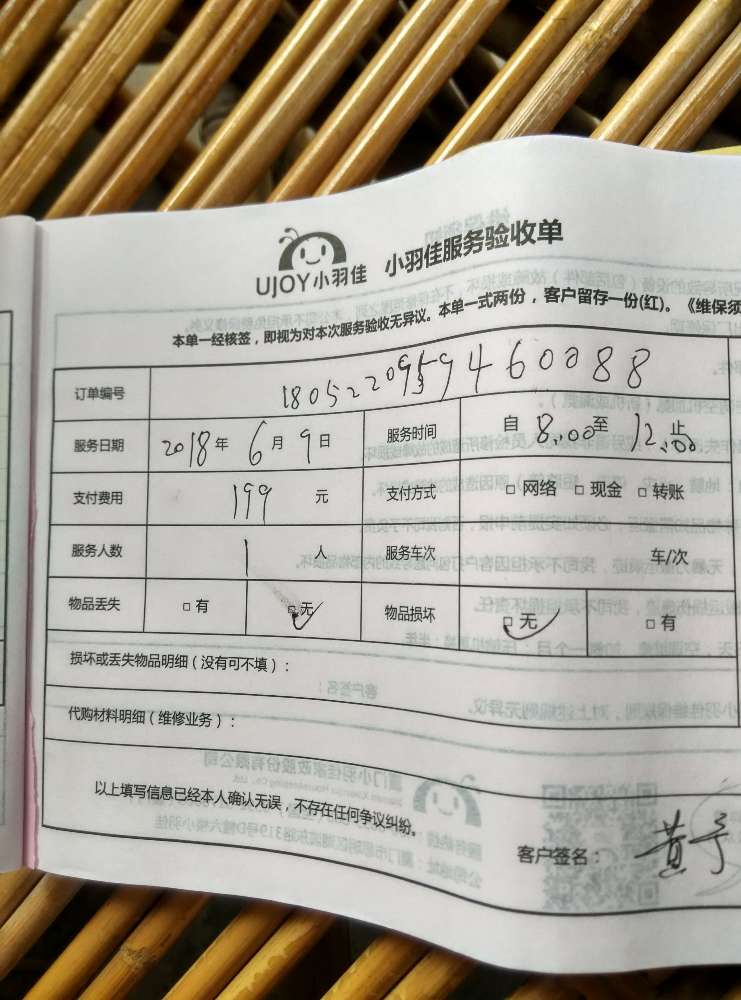 UJOY小羽佳 小羽佳服务验收单
本单一经核签，即视为对本次服务验收无异议。本单一式两份，客户留存一份(红)。《维保须
订单编号
服务日期 2018年 6月 9日 服务时间 自 8:00至 12:00止
支付费用 199 元 支付方式 □ 网络 □ 现金 □ 转账
服务人数 1 人 服务车次 车/次
物品丢失 □ 有 □ 无 物品损坏 □ 无 □ 有
损坏或丢失物品明细（没有可不填）：
代购材料明细（维修业务）：
以上填写信息已经本人确认无误，不存在任何争议纠纷。
客户签名： 黄